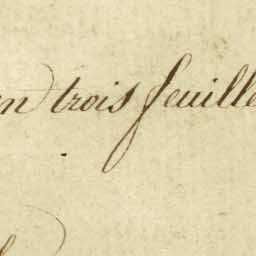 en trois feuille